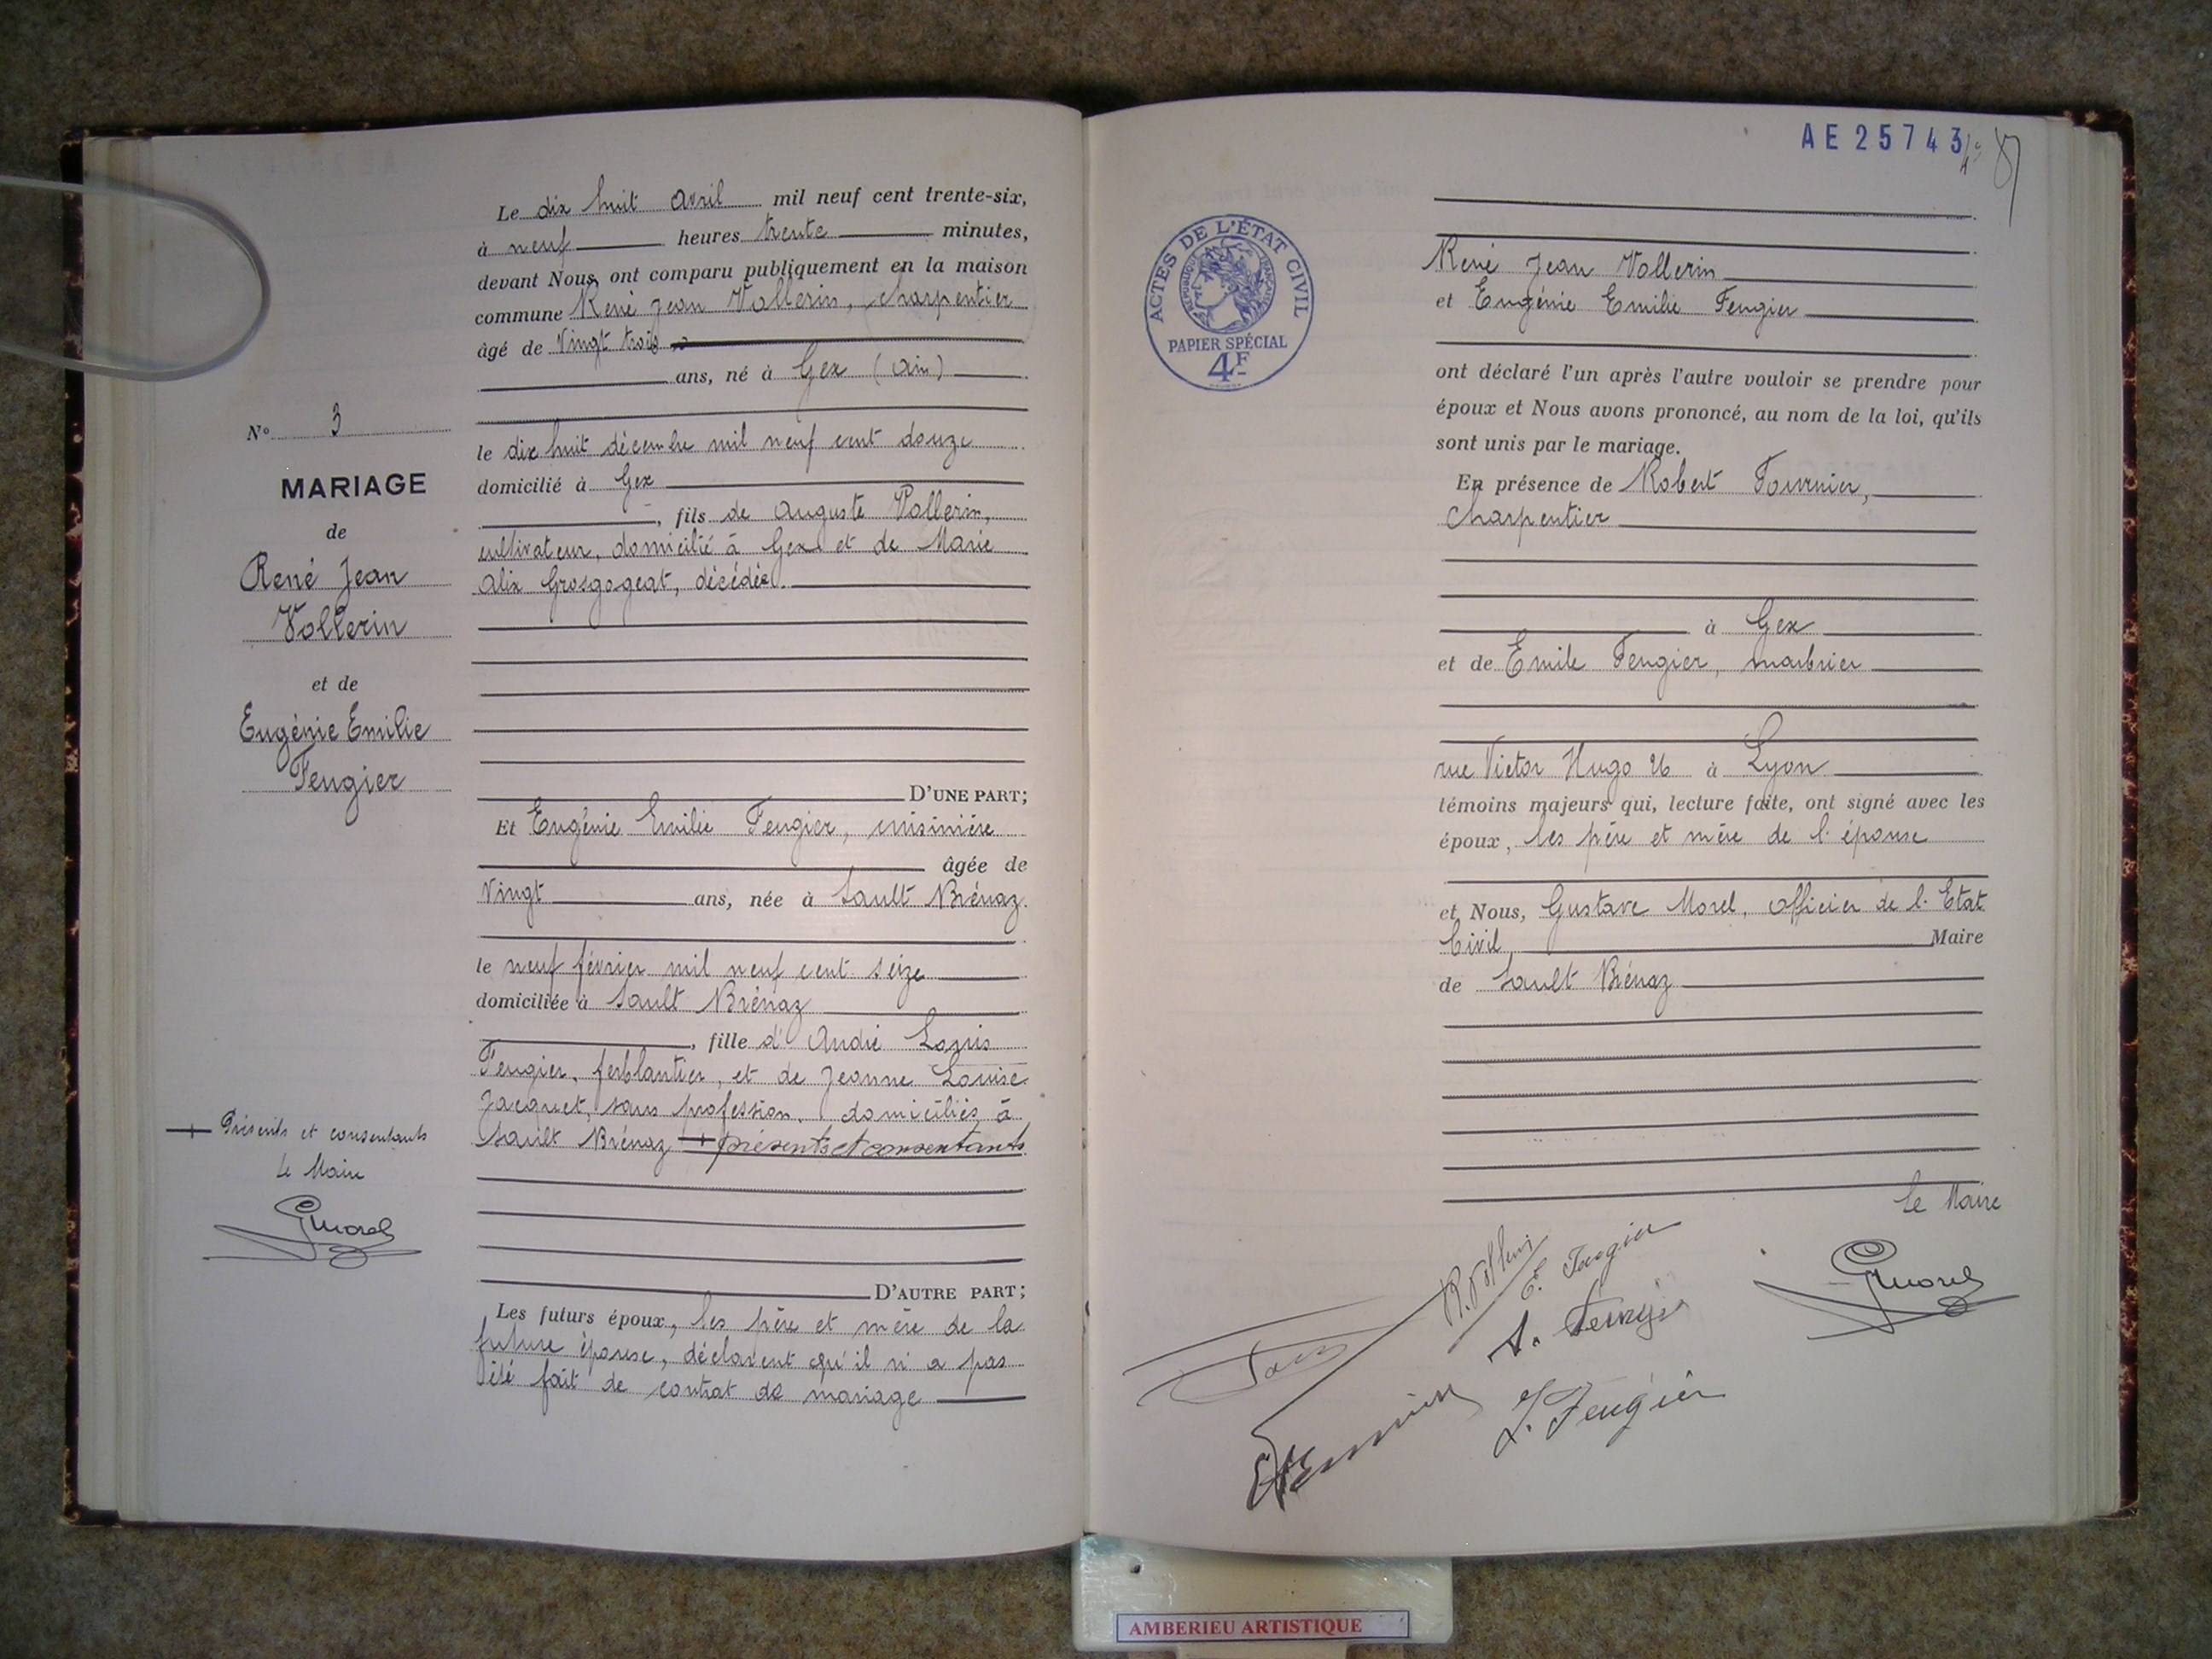 Le dix huit avril mil neuf cent trente-six,
à neuf heures trente minutes,
devant Nous, ont comparu publiquement en la maison
commune René Jean Vollerin, charpentier
âgé de vingt trois
ans, né à Gex (Ain)
le dix huit décembre mil neuf cent douze
domicilié à Gex
, fils de Auguste Vollerin,
cultivateur, domicilié à Gex et de Marie
Alix Grosgogeat, décédée.
D'UNE PART;
Et Eugénie Emilie Feugier, cuisinière
âgée de
vingt ans, née à Sault Brénaz
le neuf février mil neuf cent seize
domiciliée à Sault Brénaz
, fille d' André Louis
Feugier, ferblantier, et de Jeanne Louise
Jacquet, sans profession, domiciliés à
Sault Brénaz + présents et consentants
D'AUTRE PART;
Les futurs époux, les père et mère de la
future épouse, déclarent qu'il n'a pas
été fait de contrat de mariage
N° 3
MARIAGE
de
René Jean
Vollerin
et de
Eugénie Emilie
Feugier
+ Présents et consentants
Le Maire
GMorel
AE 25743
René Jean Vollerin
et Eugénie Emilie Feugier
ont déclaré l'un après l'autre vouloir se prendre pour
époux et Nous avons prononcé, au nom de la loi, qu'ils
sont unis par le mariage.
En présence de Robert Fournier,
charpentier
à Gex
et de Emile Feugier, marbrier
rue Victor Hugo 26 à Lyon
témoins majeurs qui, lecture faite, ont signé avec les
époux, les père et mère de l'épouse
et Nous, Gustave Morel, officier de l'Etat
Civil Maire
de Sault Brénaz
Le Maire
R. Vollerin
E. Feugier
GMorel
L. Feugier
ACTES DE L'ÉTAT CIVIL
RÉPUBLIQUE FRANÇAISE
PAPIER SPÉCIAL
4F
AMBERIEU ARTISTIQUE